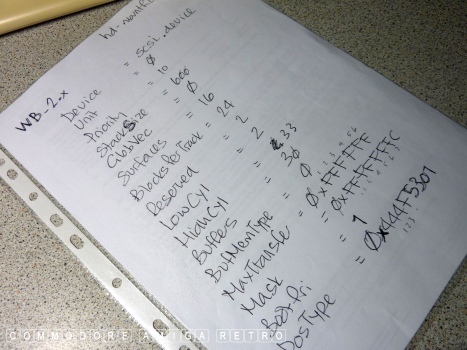 hd-
WB_2.x
Device = scsi.device
Unit = Ø
Priority = 10
StackSize = 600
GlobVec = Ø
Surfaces = 16
BlocksPerTrack = 24
Reserved = 2
LowCyl =
HighCyl = 33
Buffers = 30
BufMemType = Ø
MaxTransfe = ØxFFFFFF
Mask = ØxFFFFFFFC
BootPri = 1
DosType = Øx444F5301
123
COMMODORE AMIGA RETRO